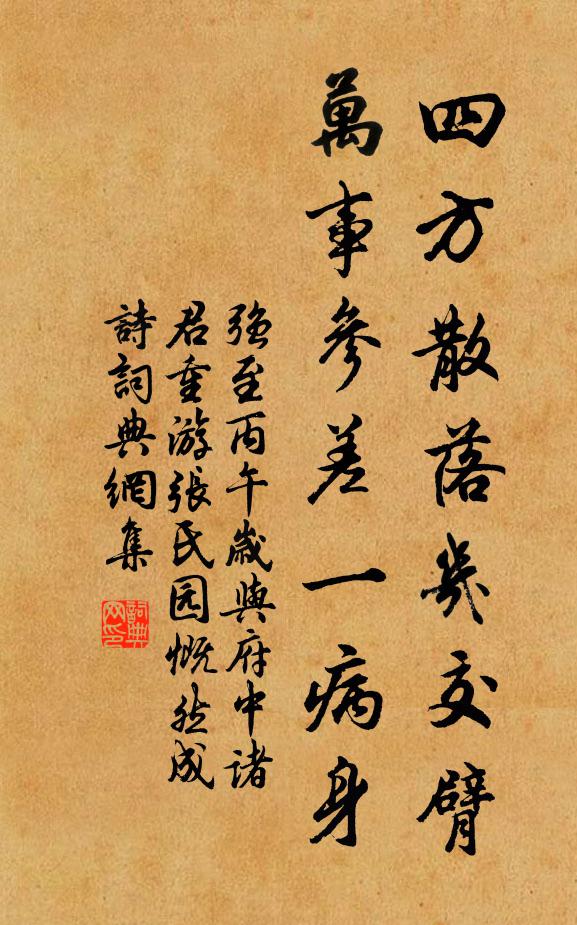 四方散落幾交臂
萬事參差一病身
强至丙午歲與府中諸
君重游張氏园慨然成
詩詞典網集
詞典
网印